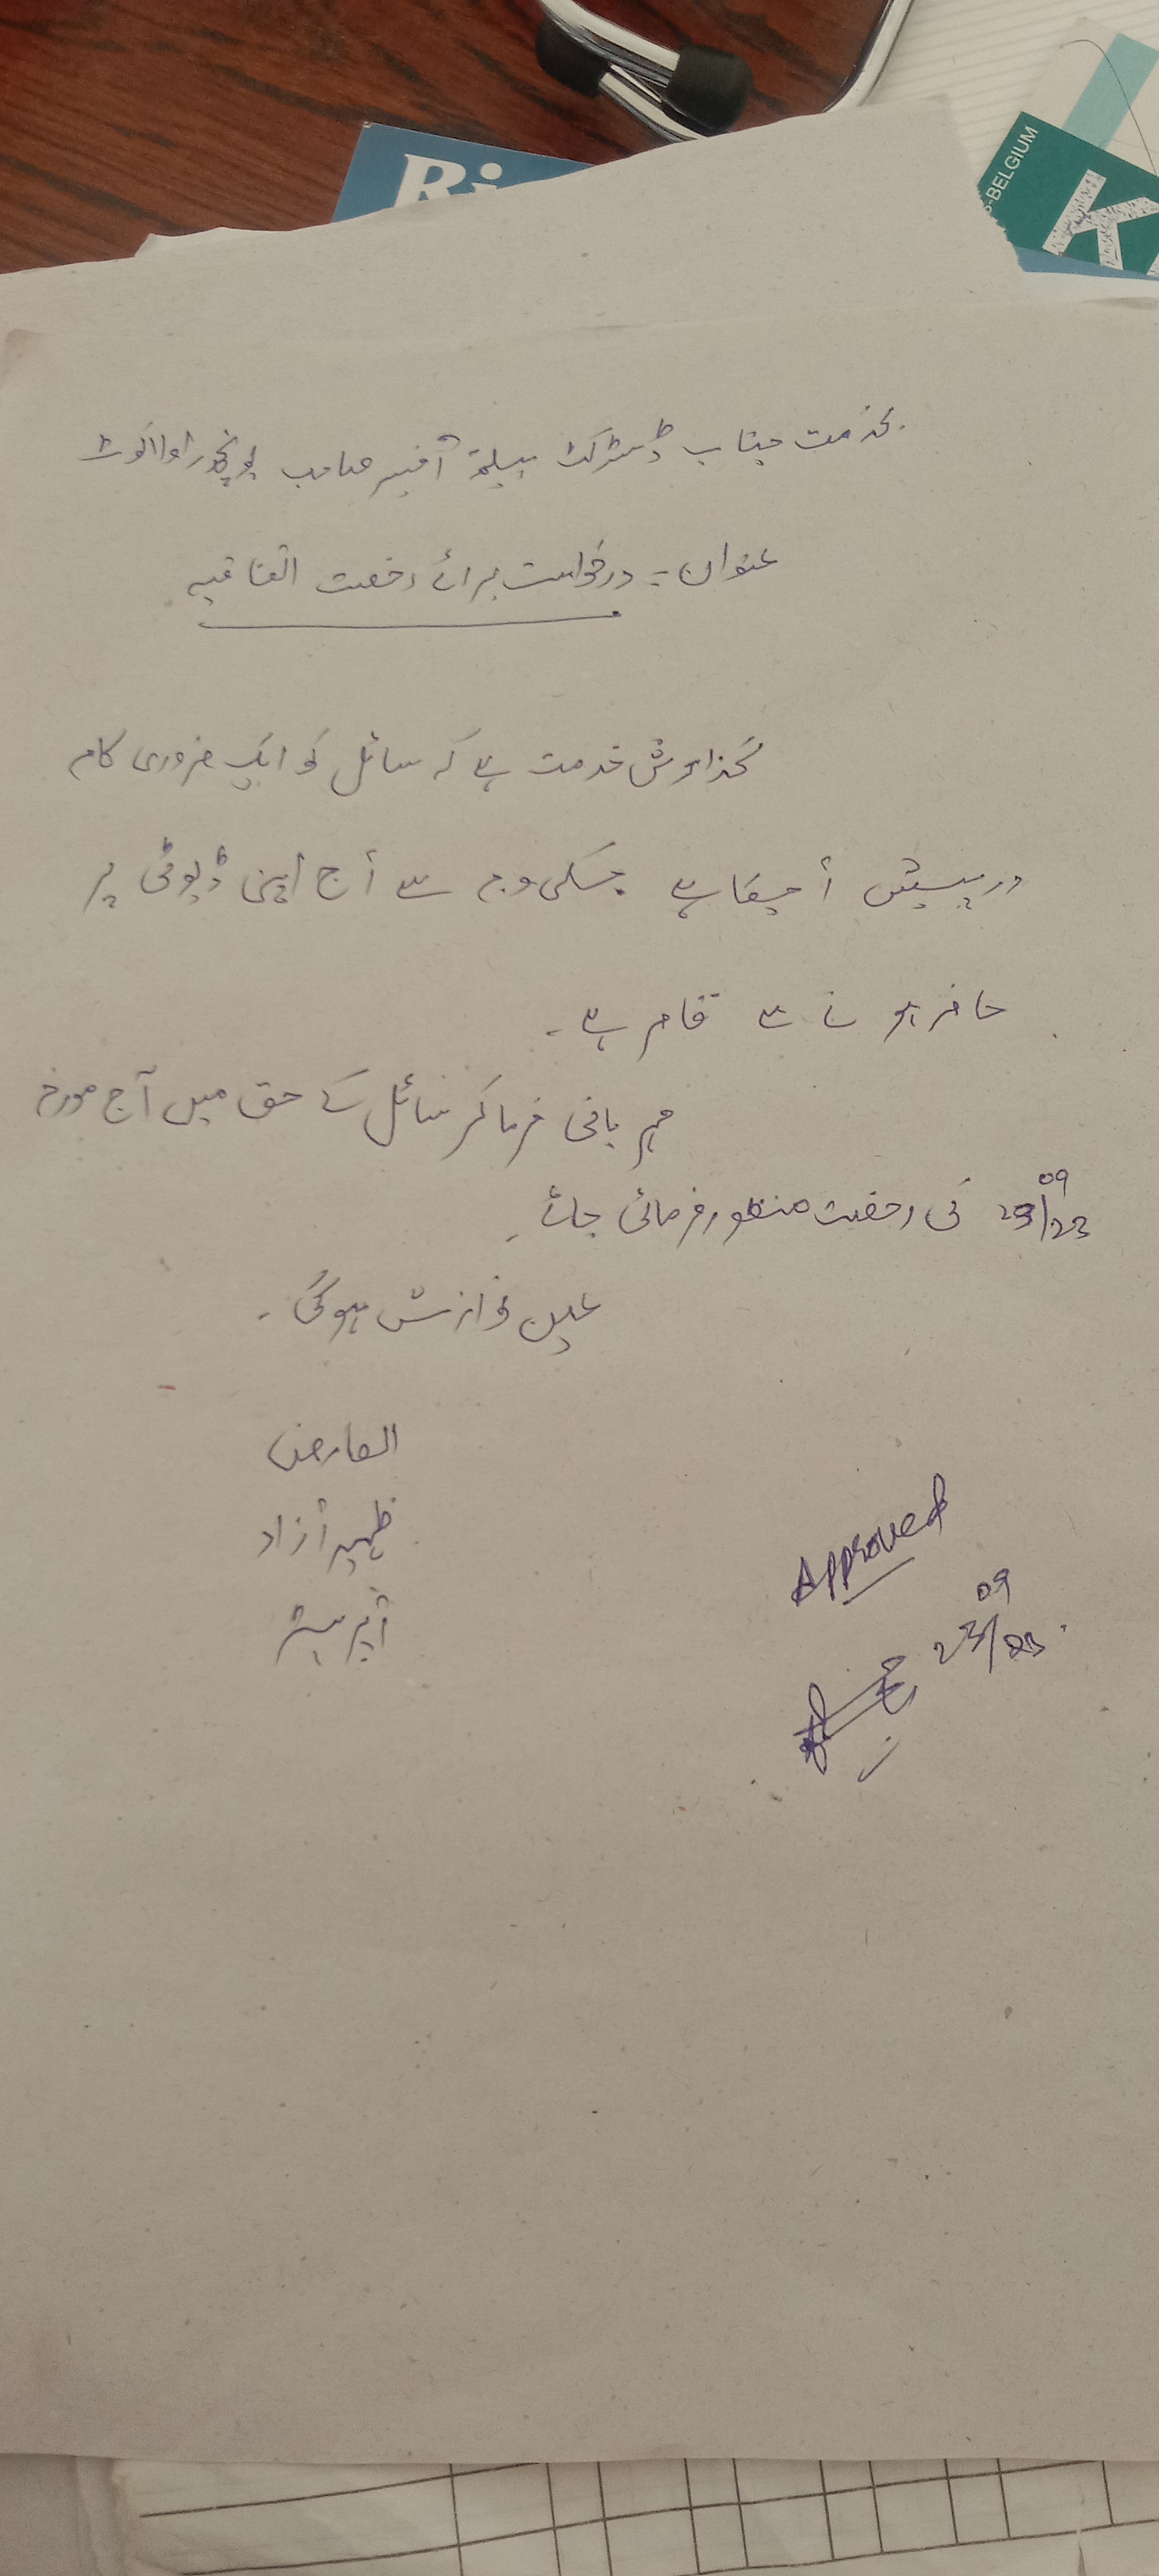 Ri
S-BELGIUM
K
بخدمت جناب ڈسٹرکٹ ہیلتھ آفیسر صاحب پونچھ راولاکوٹ
عنوان:۔ درخواست برائے رخصت اتفاقیہ
گذارش خدمت ہے کہ سائل کو ایک ضروری کام
درپیش آ چکا ہے جسکی وجہ سے آج اپنی ڈیوٹی پر
حاضر ہونے سے قاصر ہے۔
مہربانی فرما کر سائل کے حق میں آج مورخہ
23/09/23 کی رخصت منظور فرمائی جائے۔
عین نوازش ہوگی۔
العارض
ظہیر آزاد
آپریٹر
Approved
23/09/23